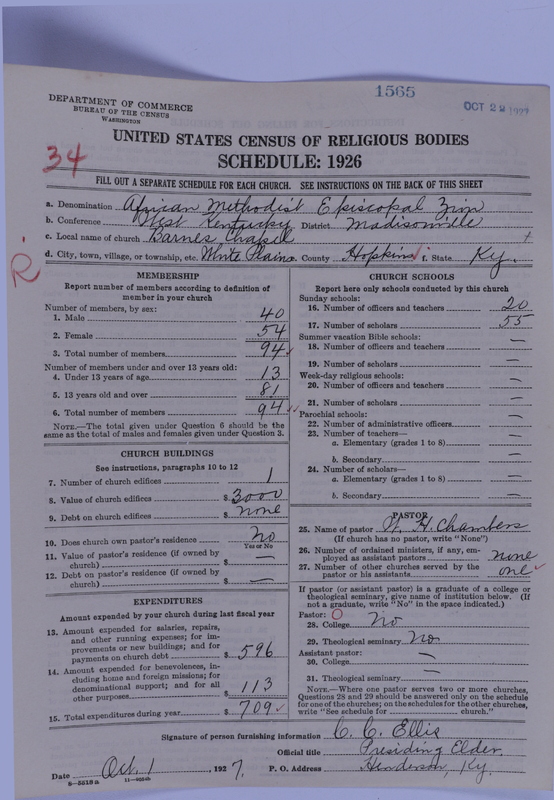 1565
OCT 22 1927
DEPARTMENT OF COMMERCE
BUREAU OF THE CENSUS
WASHINGTON
UNITED STATES CENSUS OF RELIGIOUS BODIES
SCHEDULE: 1926
34
R
FILL OUT A SEPARATE SCHEDULE FOR EACH CHURCH. SEE INSTRUCTIONS ON THE BACK OF THIS SHEET
a. Denomination African Methodist Episcopal Zion
b. Conference West Kentucky District Madisonville
c. Local name of church Barnes Chapel
d. City, town, village, or township, etc. White Plains County Hopkins f. State Ky.
MEMBERSHIP
Report number of members according to definition of
member in your church
Number of members, by sex:
1. Male 40
2. Female 54
3. Total number of members 94
Number of members under and over 13 years old:
4. Under 13 years of age 13
5. 13 years old and over 81
6. Total number of members 94
NOTE.—The total given under Question 6 should be the
same as the total of males and females given under Question 3.
CHURCH BUILDINGS
See instructions, paragraphs 10 to 12
7. Number of church edifices 1
8. Value of church edifices $ 3000
9. Debt on church edifices $ none
10. Does church own pastor's residence? No
Yes or No
11. Value of pastor's residence (if owned by
church) $ —
12. Debt on pastor's residence (if owned by
church) $ —
EXPENDITURES
Amount expended by your church during last fiscal year
13. Amount expended for salaries, repairs,
and other running expenses; for im-
provements or new buildings; and for
payments on church debt $ 596
14. Amount expended for benevolences, in-
cluding home and foreign missions; for
denominational support; and for all
other purposes $ 113
15. Total expenditures during year $ 709
CHURCH SCHOOLS
Report here only schools conducted by this church
Sunday schools:
16. Number of officers and teachers 20
17. Number of scholars 55
Summer vacation Bible schools:
18. Number of officers and teachers —
19. Number of scholars —
Week-day religious schools:
20. Number of officers and teachers —
21. Number of scholars —
Parochial schools:
22. Number of administrative officers —
23. Number of teachers—
a. Elementary (grades 1 to 8) —
b. Secondary —
24. Number of scholars—
a. Elementary (grades 1 to 8) —
b. Secondary —
PASTOR
25. Name of pastor H. Chambers
(If church has no pastor, write "None")
26. Number of ordained ministers, if any, em-
ployed as assistant pastors none
27. Number of other churches served by the
pastor or his assistants one
If pastor (or assistant pastor) is a graduate of a college or
theological seminary, give name of institution below. (If
not a graduate, write "No" in the space indicated.)
Pastor:
28. College No
29. Theological seminary No
Assistant pastor:
30. College —
31. Theological seminary —
NOTE.—Where one pastor serves two or more churches,
Questions 28 and 29 should be answered only on the schedule
for one of the churches; on the schedules for the other churches,
write "See schedule for ______ church."
Signature of person furnishing information C. C. Ellis
Official title Presiding Elder
Date Oct. 1, 1927. P. O. Address Henderson, Ky.
8—5518a